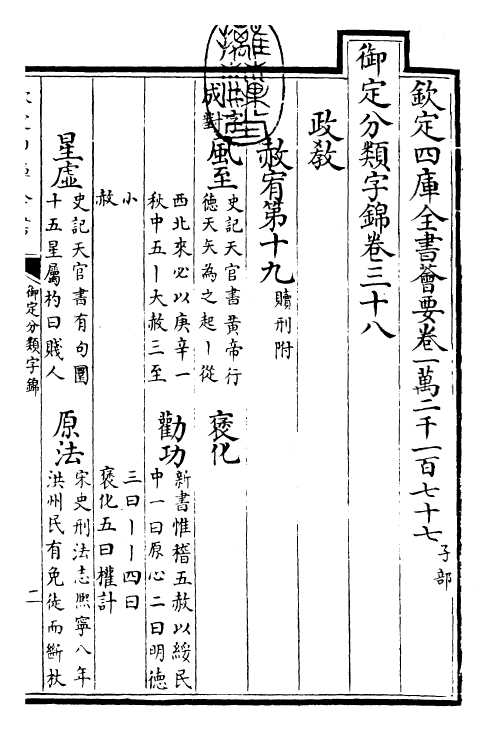 欽定四庫全書薈要卷一萬二千一百七十七 子部
御定分類字錦卷三十八
政教
赦宥第十九 贖刑附
成對
風至 史記天官書黃帝行
德天矢為之起丨從
西北來必以庚辛一
秋中五丨大赦三至
小
赦
褒化
勸功 新書惟稽五赦以綏民
中一曰原心二曰明德
三曰丨丨四曰
褒化五曰權計
星虛 史記天官書有句圜
十五星屬杓曰賤人
原法 宋史刑法志熙寧八年
洪州民有免徒而斷杖
御定分類字錦
二